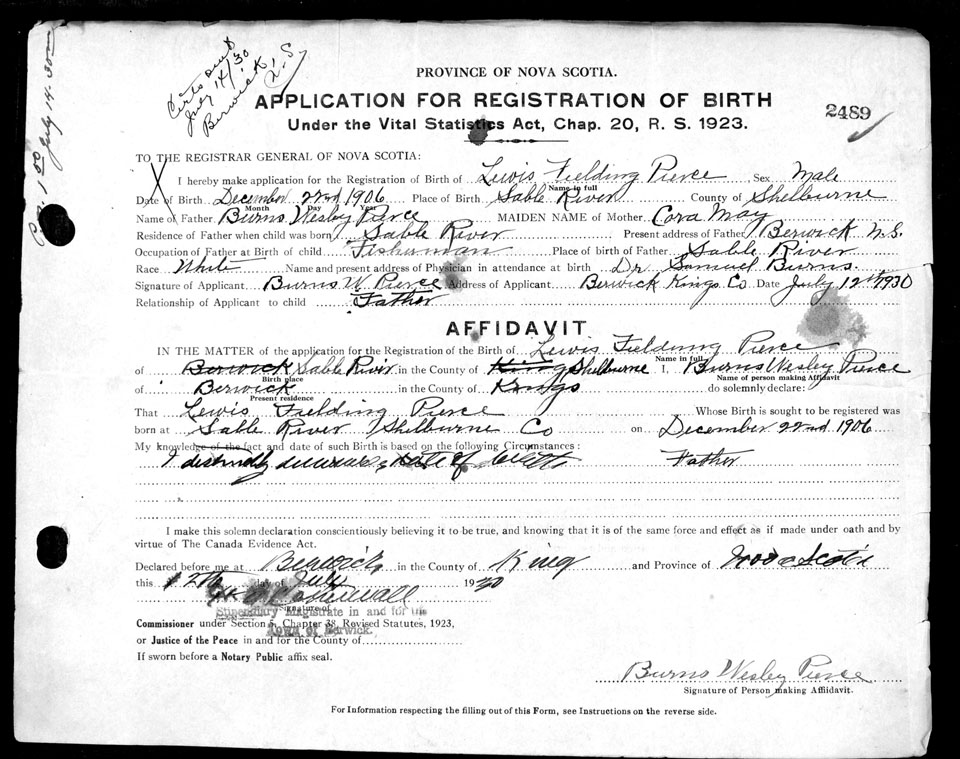 Certs sent
July 14/30
Berwick
N.S
1.00 July 14. 30
PROVINCE OF NOVA SCOTIA.
APPLICATION FOR REGISTRATION OF BIRTH
2489
Under the Vital Statistics Act, Chap. 20, R. S. 1923.
TO THE REGISTRAR GENERAL OF NOVA SCOTIA:
X I hereby make application for the Registration of Birth of Lewis Fielding Pierce Sex Male
Name in full
Date of Birth December 22nd 1906 Place of Birth Sable River County of Shelburne
Month Day Year
Name of Father Burns Wesley Pierce MAIDEN NAME of Mother Cora May
Residence of Father when child was born Sable River Present address of Father Berwick N.S.
Occupation of Father at Birth of child Fisherman Place of birth of Father Sable River
Race White Name and present address of Physician in attendance at birth Dr Samuel Burns
Signature of Applicant Burns W. Pierce Address of Applicant Berwick Kings Co Date July 12th 1930
Relationship of Applicant to child Father
AFFIDAVIT
IN THE MATTER of the application for the Registration of the Birth of Lewis Fielding Pierce
Name in full
of Berwick Sable River in the County of Kings Shelburne I, Burns Wesley Pierce
Birth place Name of person making Affidavit
of Berwick in the County of Kings do solemnly declare:
Present residence
That Lewis Fielding Pierce Whose Birth is sought to be registered was
born at Sable River Shelburne Co on December 22nd 1906
My knowledge of the fact and date of such Birth is based on the following Circumstances:
I distinctly date of Father
I make this solemn declaration conscientiously believing it to be true, and knowing that it is of the same force and effect as if made under oath and by
virtue of The Canada Evidence Act.
Declared before me at Berwick in the County of King and Province of Nova Scotia
this 12th day of July 1930
Signature of
Stipendiary Magistrate in and for the
Commissioner under Section 5, Chapter 38, Revised Statutes, 1923,
Town of Berwick.
or Justice of the Peace in and for the County of
If sworn before a Notary Public affix seal.
Burns Wesley Pierce
Signature of Person making Affidavit.
For Information respecting the filling out of this Form, see Instructions on the reverse side.